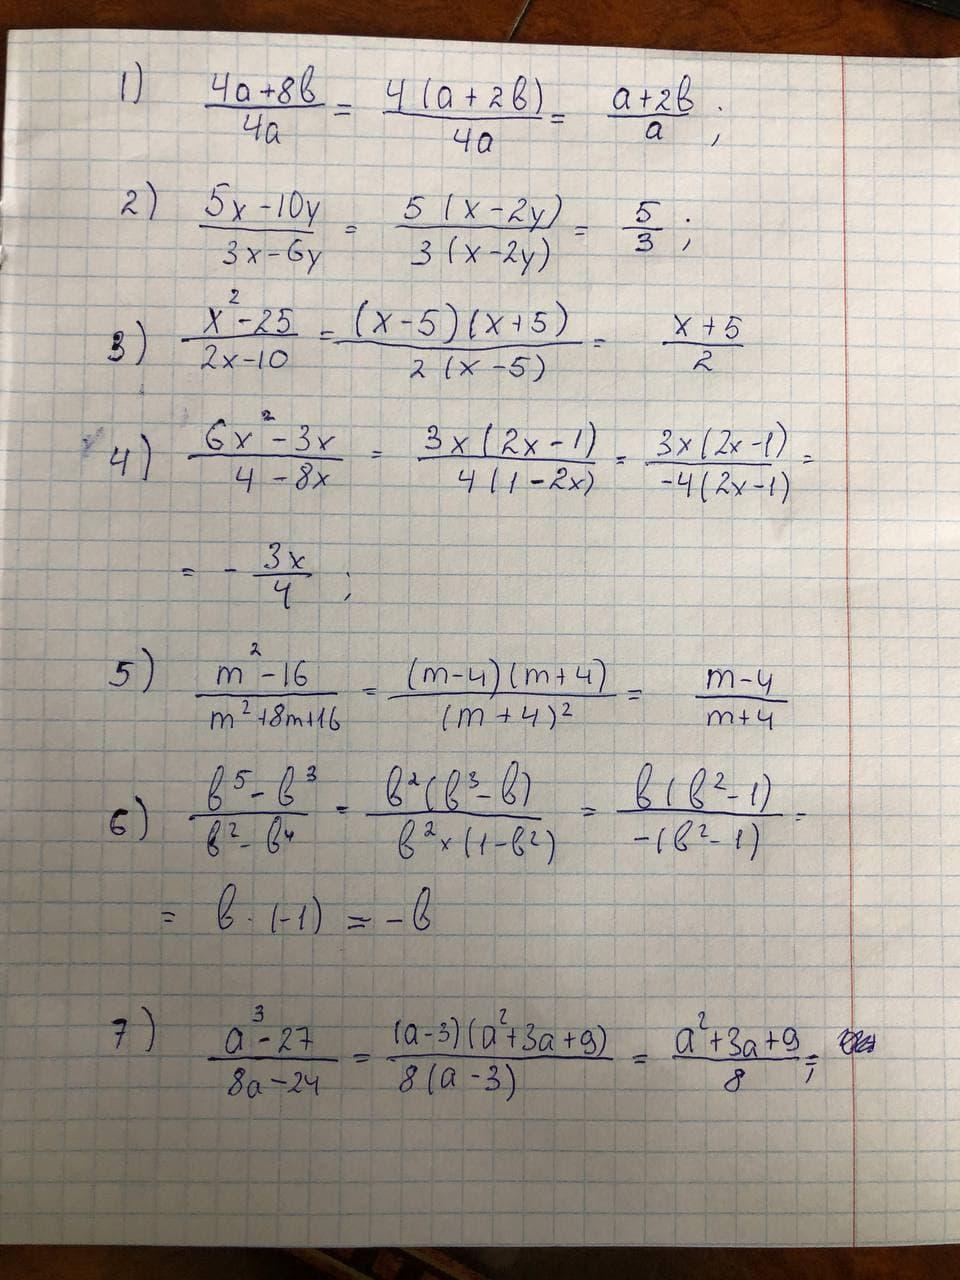 1) (4a+8b)/(4a) = (4(a+2b))/(4a) = (a+2b)/a ;
2) (5x-10y)/(3x-6y) = (5(x-2y))/(3(x-2y)) = 5/3 ;
3) (x²-25)/(2x-10) = ((x-5)(x+5))/(2(x-5)) = (x+5)/2
4) (6x²-3x)/(4-8x) = (3x(2x-1))/(4(1-2x)) = (3x(2x-1))/(-4(2x-1)) =
= - (3x)/4 ;
5) (m²-16)/(m²+8m+16) = ((m-4)(m+4))/((m+4)²) = (m-4)/(m+4)
6) (b⁵-b³)/(b²-b⁴) = (b²(b³-b))/(b²×(1-b²)) = (b(b²-1))/(-(b²-1)) =
= b·(-1) = -b
7) (a³-27)/(8a-24) = ((a-3)(a²+3a+9))/(8(a-3)) = (a²+3a+9)/8 ;